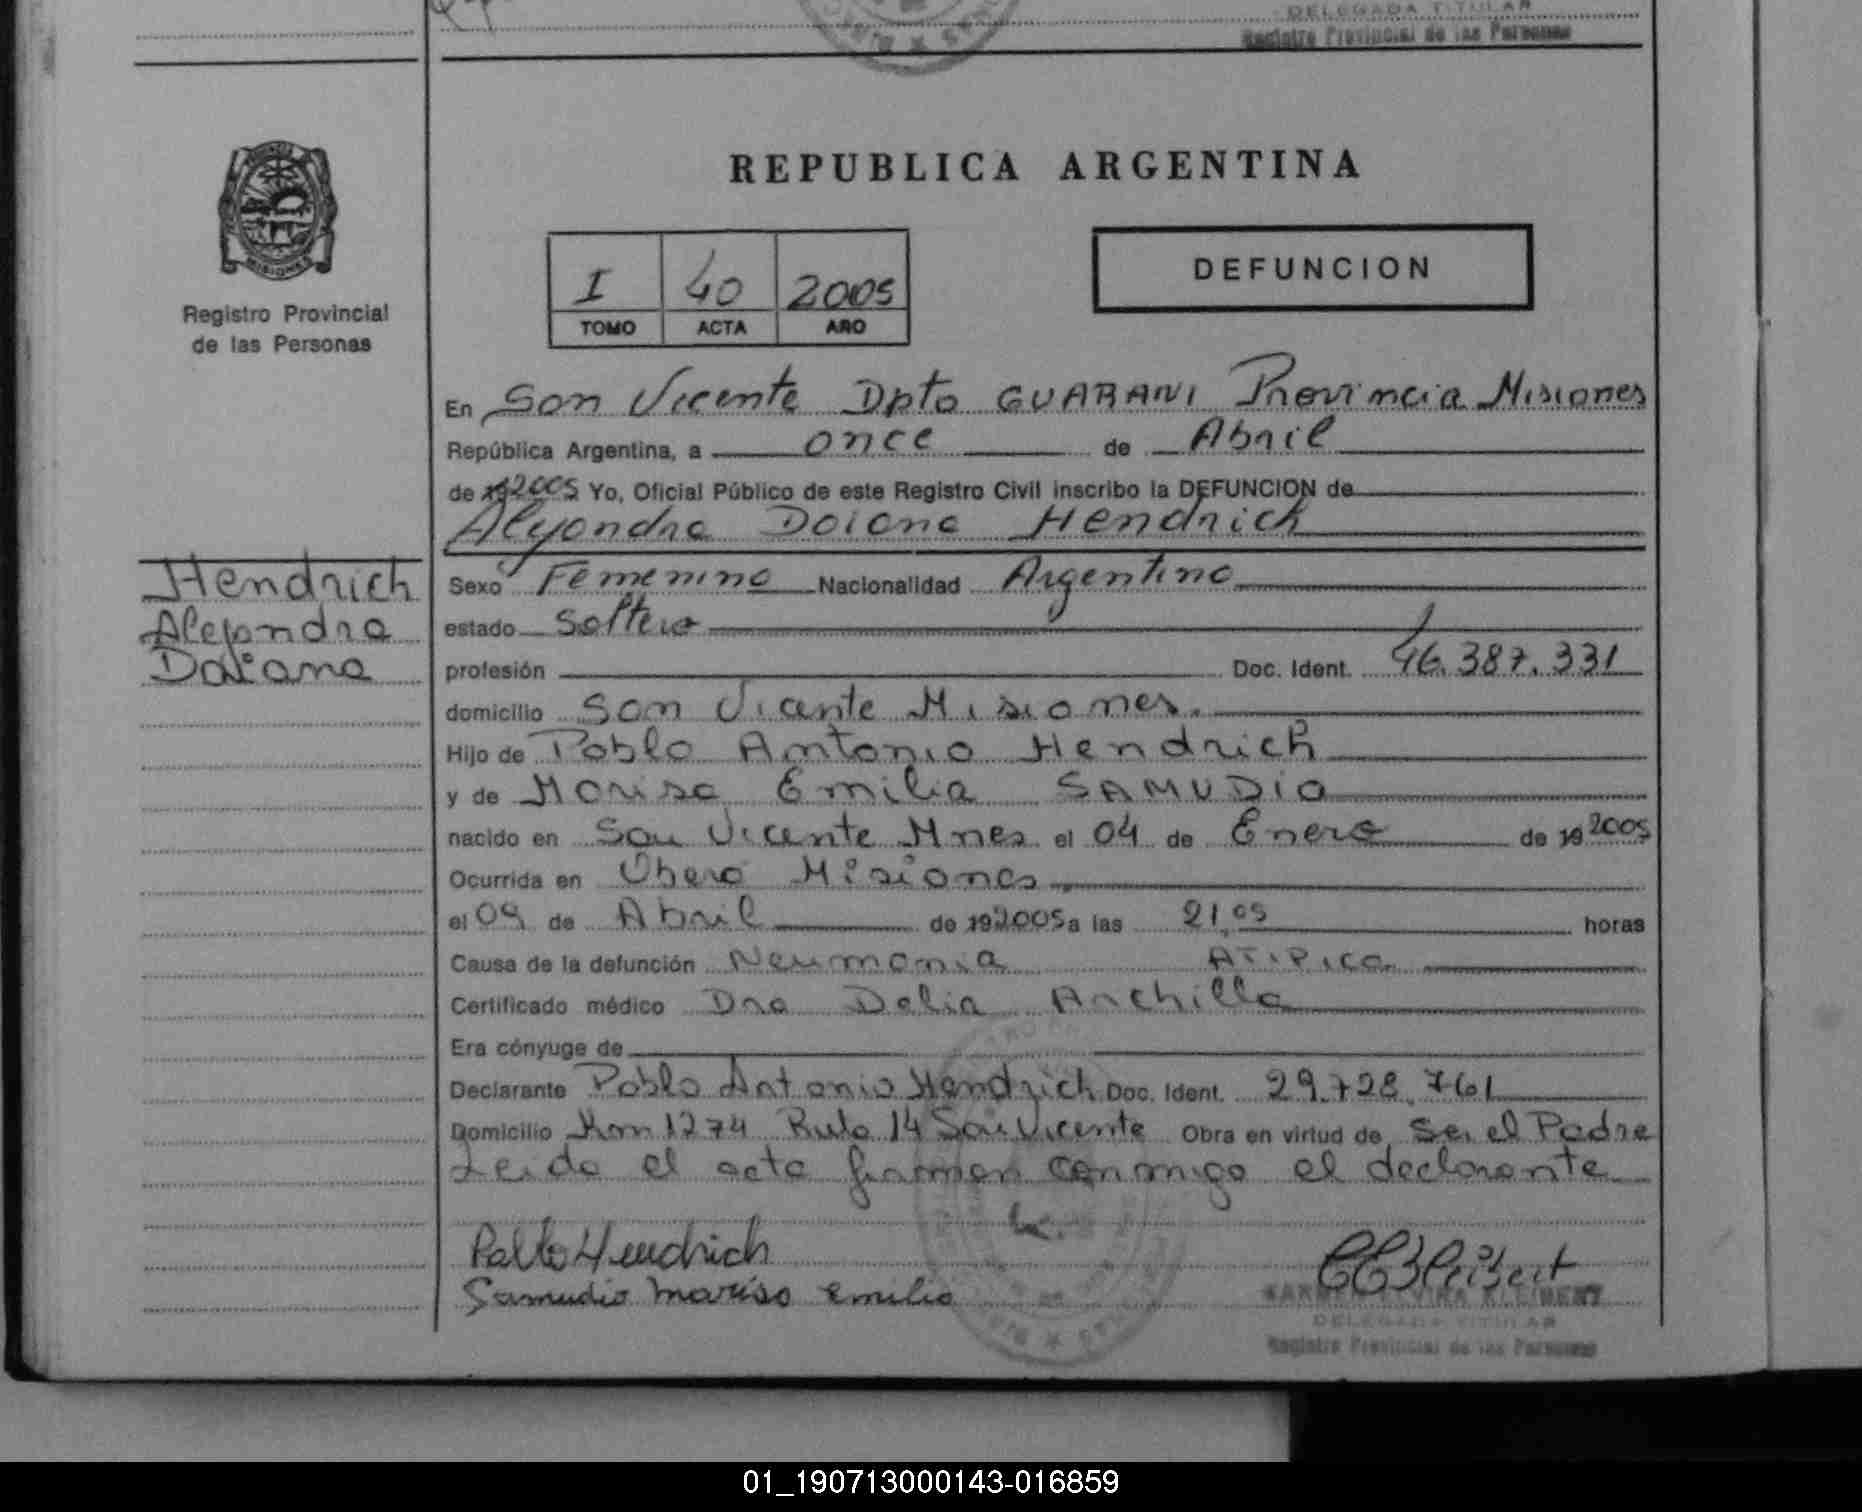 DELEGADA TITULAR
Registro Provincial de las Personas
MISIONES
Registro Provincial
de las Personas
REPUBLICA ARGENTINA
I 40 2005
TOMO ACTA AÑO
DEFUNCION
En San Vicente Dpto GUARANI Provincia Misiones
República Argentina, a once de Abril
de 192005 Yo, Oficial Público de este Registro Civil inscribo la DEFUNCION de
Alejandra Daiana Hendrich
Hendrich
Alejandra
Daiana
Sexo Femenino Nacionalidad Argentina
estado Soltera
profesión Doc. Ident. 46.387.331
domicilio San Vicente Misiones.
Hijo de Pablo Antonio Hendrich
y de Marisa Emilia SAMUDIO
nacido en San Vicente Mnes el 04 de Enero de 192005
Ocurrida en Obera Misiones
el 09 de Abril de 192005 a las 21,05 horas
Causa de la defunción Neumonia ATIPICA
Certificado médico Dra Delia Archilla
Era cónyuge de
Declarante Pablo Antonio Hendrich Doc. Ident. 29.728.761
Domicilio Km 1274 Ruta 14 San Vicente Obra en virtud de Ser el Padre
Leida el acta firman conmigo el declarante
Pablo Hendrich
Samudio Marisa Emilia
KLEIBERT
DELEGADA TITULAR
Registro Provincial de las Personas
01_190713000143-016859